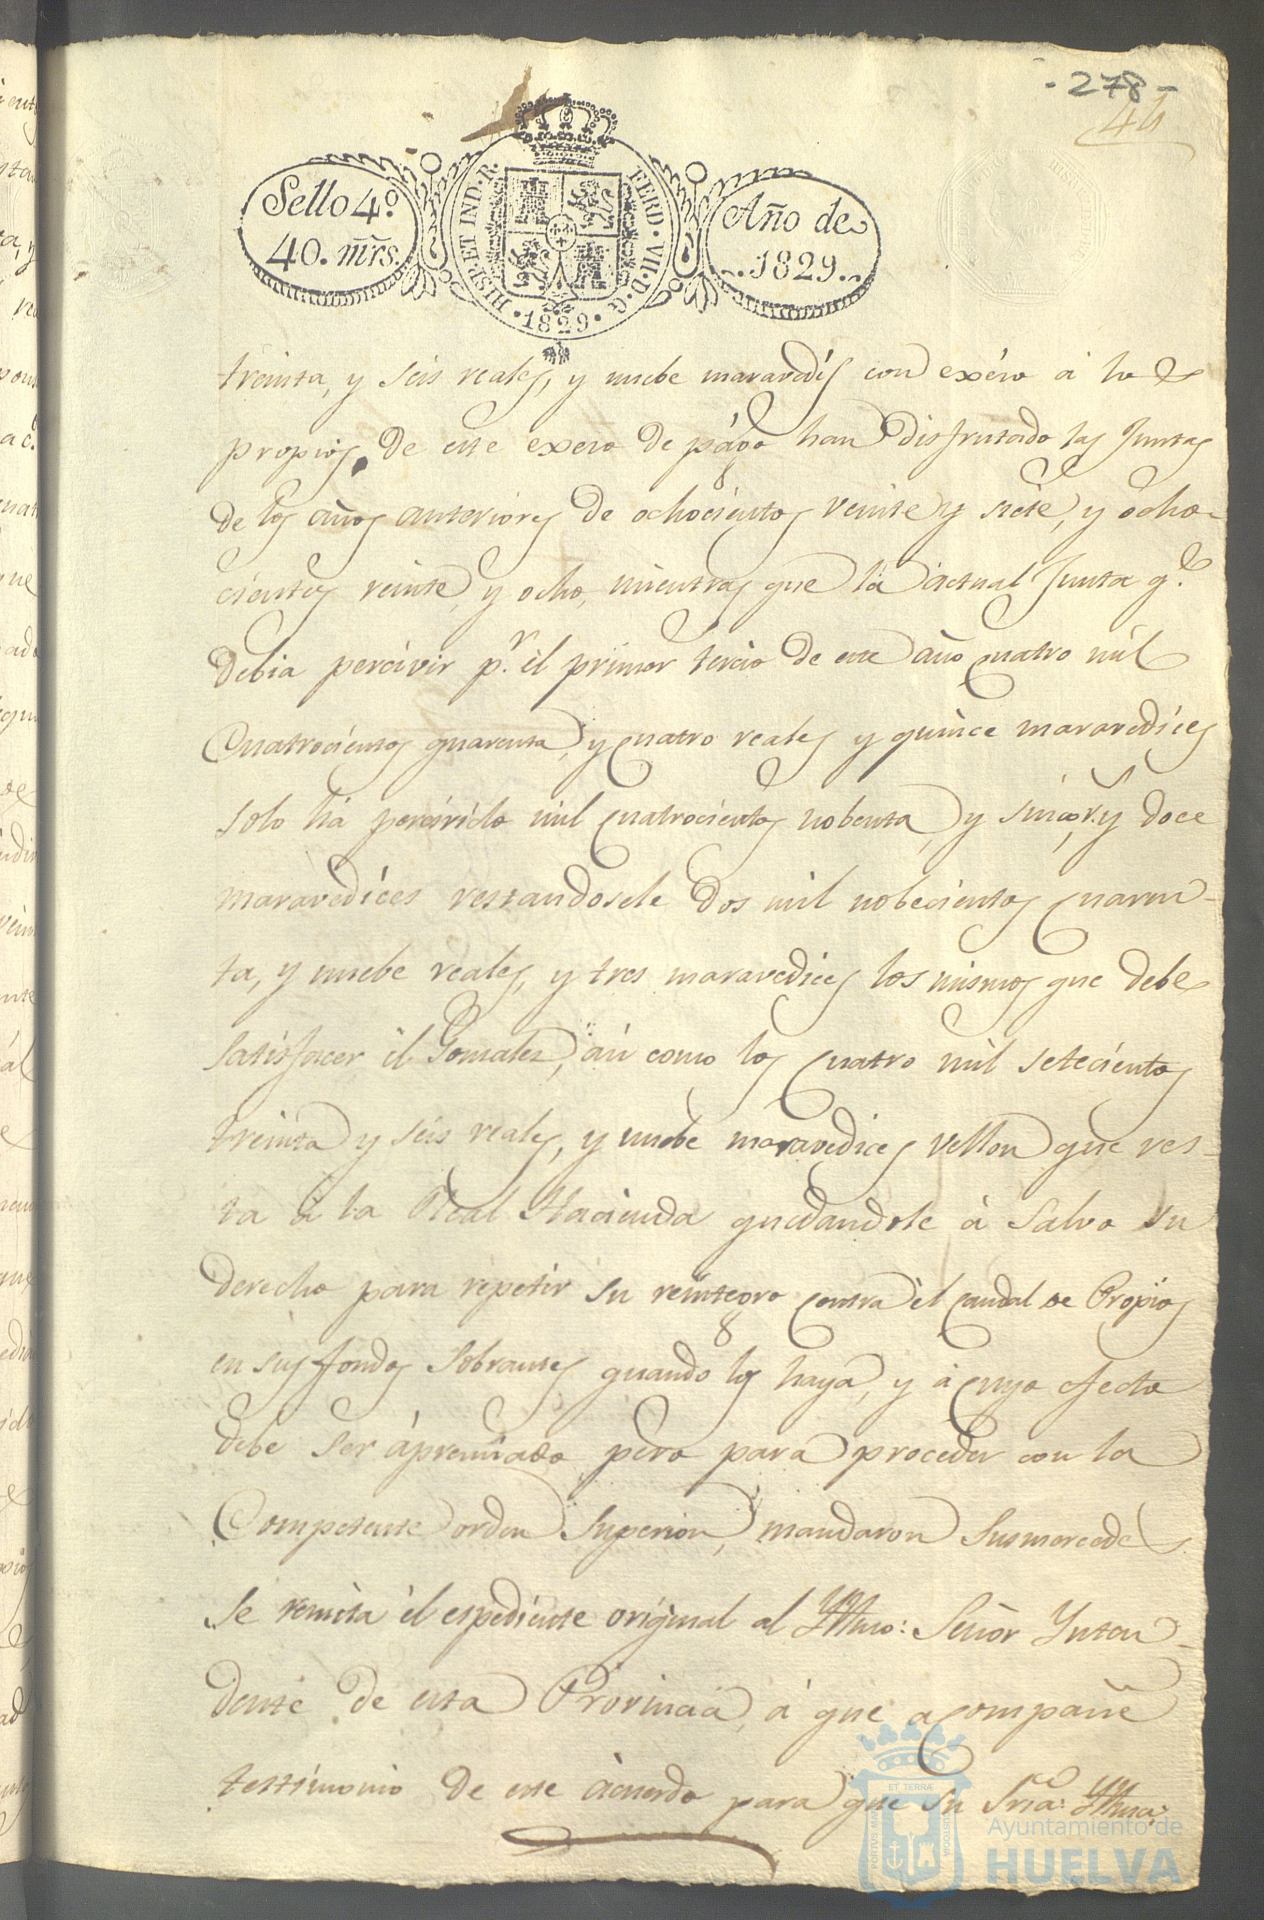 -278-
44
Sello 4º
40. mrs.
HISP. ET IND. R.
FERD. VII. D. G.
1829
Año de
1829.
treinta, y seis reales, y nuebe maravediz con exeso á lo de
propios. De este exeso de págo han disfrutado las Juntas
de los años anteriores de ochocientos veinte y siete, y ocho-
cientos veinte, y ocho, mientras que la actual Junta q.e
debia percivir p.r el primer tercio de este año quatro mil
Cuatrocientos quarenta, y quatro reales y quince maravedices
solo há percivido mil cuatrocientos nobenta, y sinco r.s y doce
maravedices restandosele dos mil nobecientos cuaren-
ta, y nuebe reales, y tres maravedices los mismos que debe
satisfacer el Gonzalez, así como los quatro mil setecientos
treinta y seis reales, y nuebe maravedices vellon que res-
ta á la Real Hacienda quedandole á salvo su
derecho para repetir su reintegro contra el caudal de Propios
en sus fondos sobrantes quando los haya, y á cuyo efecto
debe ser ápremiado pero para proceder con la
Competente orden Superior, mandaron Susmercedes
se remita el espediente original al Yltmo: Señor Ynten-
dente de esta Provincia, á que acompañe
testimonio de este ácuerdo para que Su Sria: Yltma:
Ayuntamiento de
HUELVA